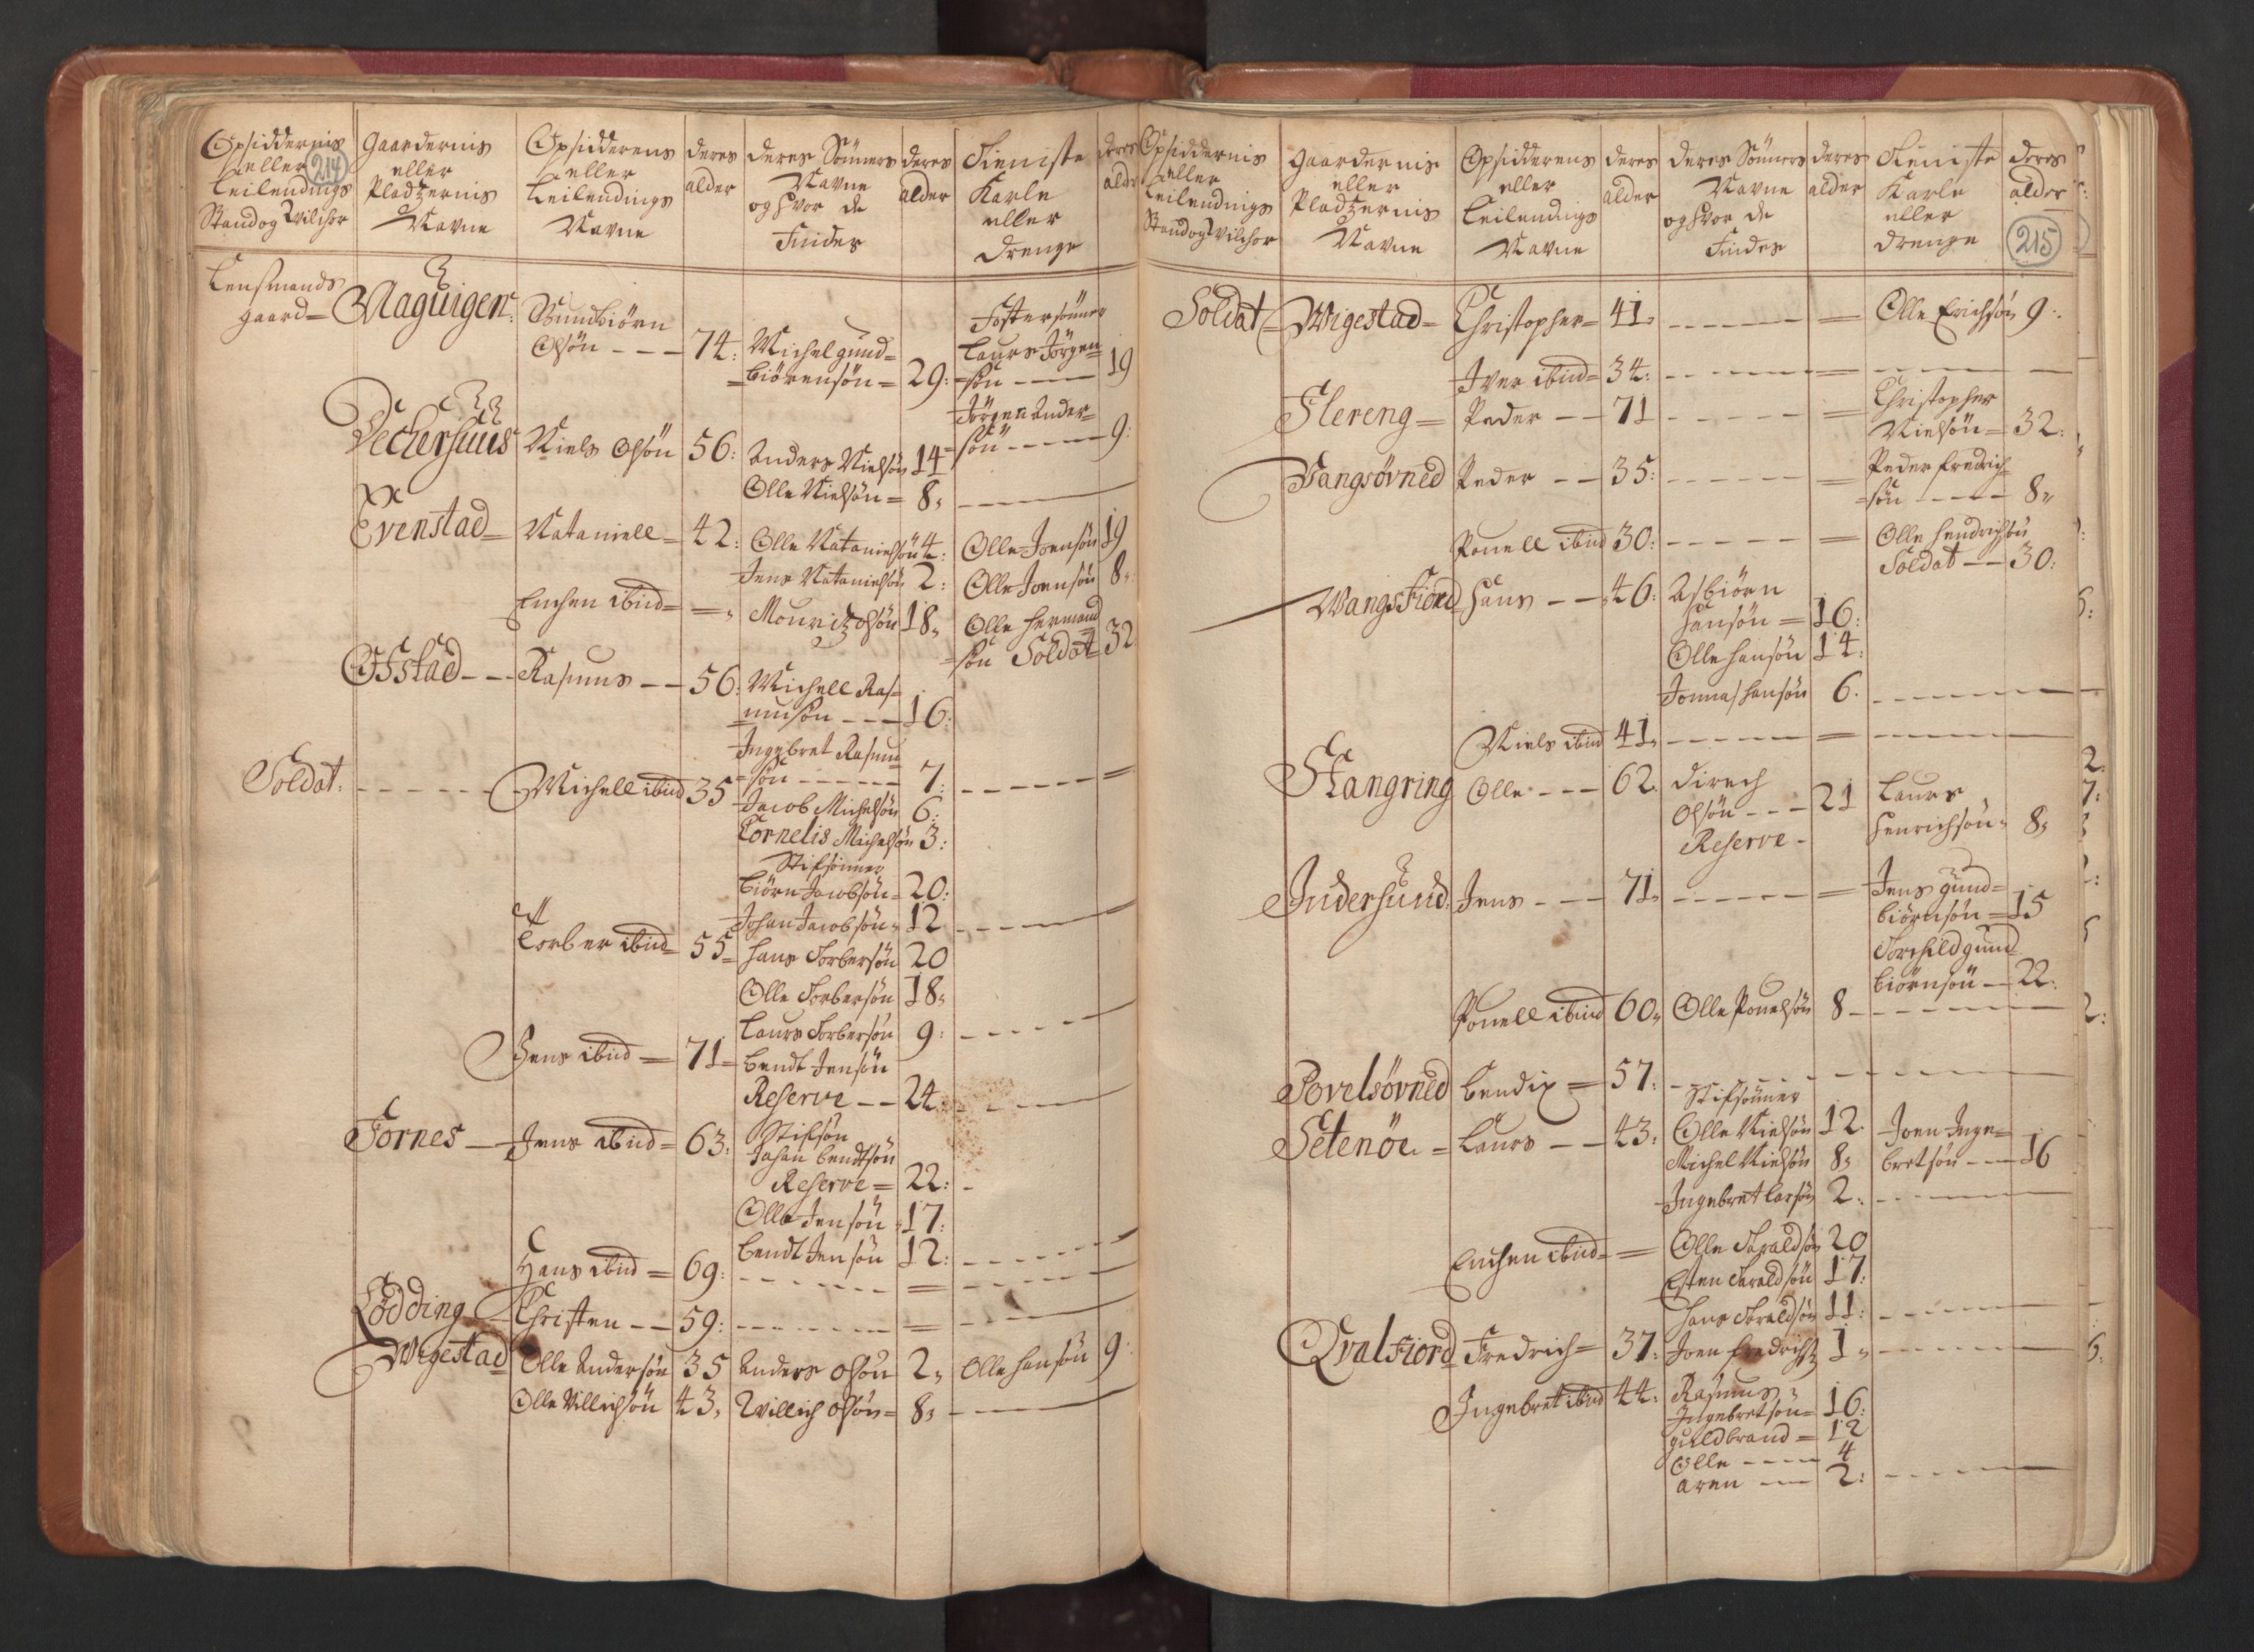 214
Opsiddernis
eller
Leilendings
Stand og Vilchor
Gaardernis
eller
Pladzernis
Navne
Opsidderens
eller
Leilendings
Navne
deres
alder
deres Sönners
Navne
og hvor de
Findes
deres
alder
Tieniste
Karle
eller
drenge
deres
alder
Lensmands
gaard = Maguigen: Gundbiörn
Olsön - - - 74: Michel gund=
=biörensön = 29:
Fostersönner
Laurs Jörgen=
=sön - - - 19
Jörgen Ander=
=sön - - - - 9:
Vechershuus Niels Olsön 56: Anders Nielsön 14
Olle Nielsön = 8,
Evenstad = Nataniell = 42: Olle Natanielsön 4: Olle Joensön 19
Jens Natanielsön 2: Olle Joensön 8,
Enchen ibid = = , Mouritz Olsön 18, Olle Hermand
=sön Soldat 32
Offstad - - - Rasmus - - 56: Michell Ras=
=musön - - - 16:
Ingebret Rasmu=
=sön - - - - - 7:
Soldat: - - - - - - Michell ibid 35 Jacob Michelsön 6:
Cornelis Michelsön 3:
Stifsönner
biörn Jacobsön = 20:
Johan Jacobsön = 12
Torber ibid = 55 = Hans Torbersön 20
Olle Torbersön 18,
Laurs Torbersön 9:
Jens ibid = 71 = bendt Jensön
Reserve - - 24
Fornes - - Jens ibid = 63: Stifsön
Johan bendtsön
Reserve = 22:
Olle Jensön = 17:
bendt Jensön 12:
Hans ibid = 69:
Lödding = Christen - - 59:
Wigestad Olle Andersön 35 Anders Olsön 2, Olle Hansön 9:
Olle Villichsön 43, Willich Olsön = 8,
215
Opsiddernis
eller
Leilendnigs
Stand og Vilchor
Gaardernis
eller
Pladzernis
Navne
Opsidderens
eller
Leilendnigs
Navne
deres
alder
deres Sönners
Navne
og hvor de
Findes
deres
alder
Tieniste
Karle
eller
drenge
deres
alder
Soldat = Wigestad = Christopher = 41, - - - - - = Olle Erichsön 9:
Iver ibid = 34: - - - - -
Flereng = Peder - - 71 - - - - - = Christopher
Nielsön = 32:
Vangsövned Peder - - 35: - - - - - = Peder Fredrich
=sön - - - - 8,
Pouell ibid 30: - - - - - = Olle Hendrichsön
Soldat - - 30:
WangsFiord Hans - - 46: Asbiörn
Hansön = 16:
Olle Hansön 14:
Jonnas Hansön 6.
Niels ibid 41, - - - - -
Stangring Olle - - - 62. direch
Olsön - - - 21
Reserve -
Laurs
Henrichsön = 8,
Indersund Jens - - - 71, - - - - - = Jens gund=
biörnsön = 15
Torchild gund
biörnsön - 22:
Pouell ibid 60, Olle Pouelsön 8 - - - - -
Povelsövned bendix = 57: - - - - - -
Stifsönner
Setenöe = Laurs - - 43: Olle Nielsön 12. Joen Inge=
Michel Nielsön 8, bretsön - - 16
Ingebret Larsön 2:
Enchen ibid = = Olle Taraldsön 20
Esten Taraldsön 17:
Hans Taraldsön 11:
QvalFiord Fredrich = 37: Joen Fredrichs 1,
Ingebret ibid 44: Rasmus =
Ingebretsön = 16:
guldbrand = 12
Olle - - - - 4
Aren - - 2: